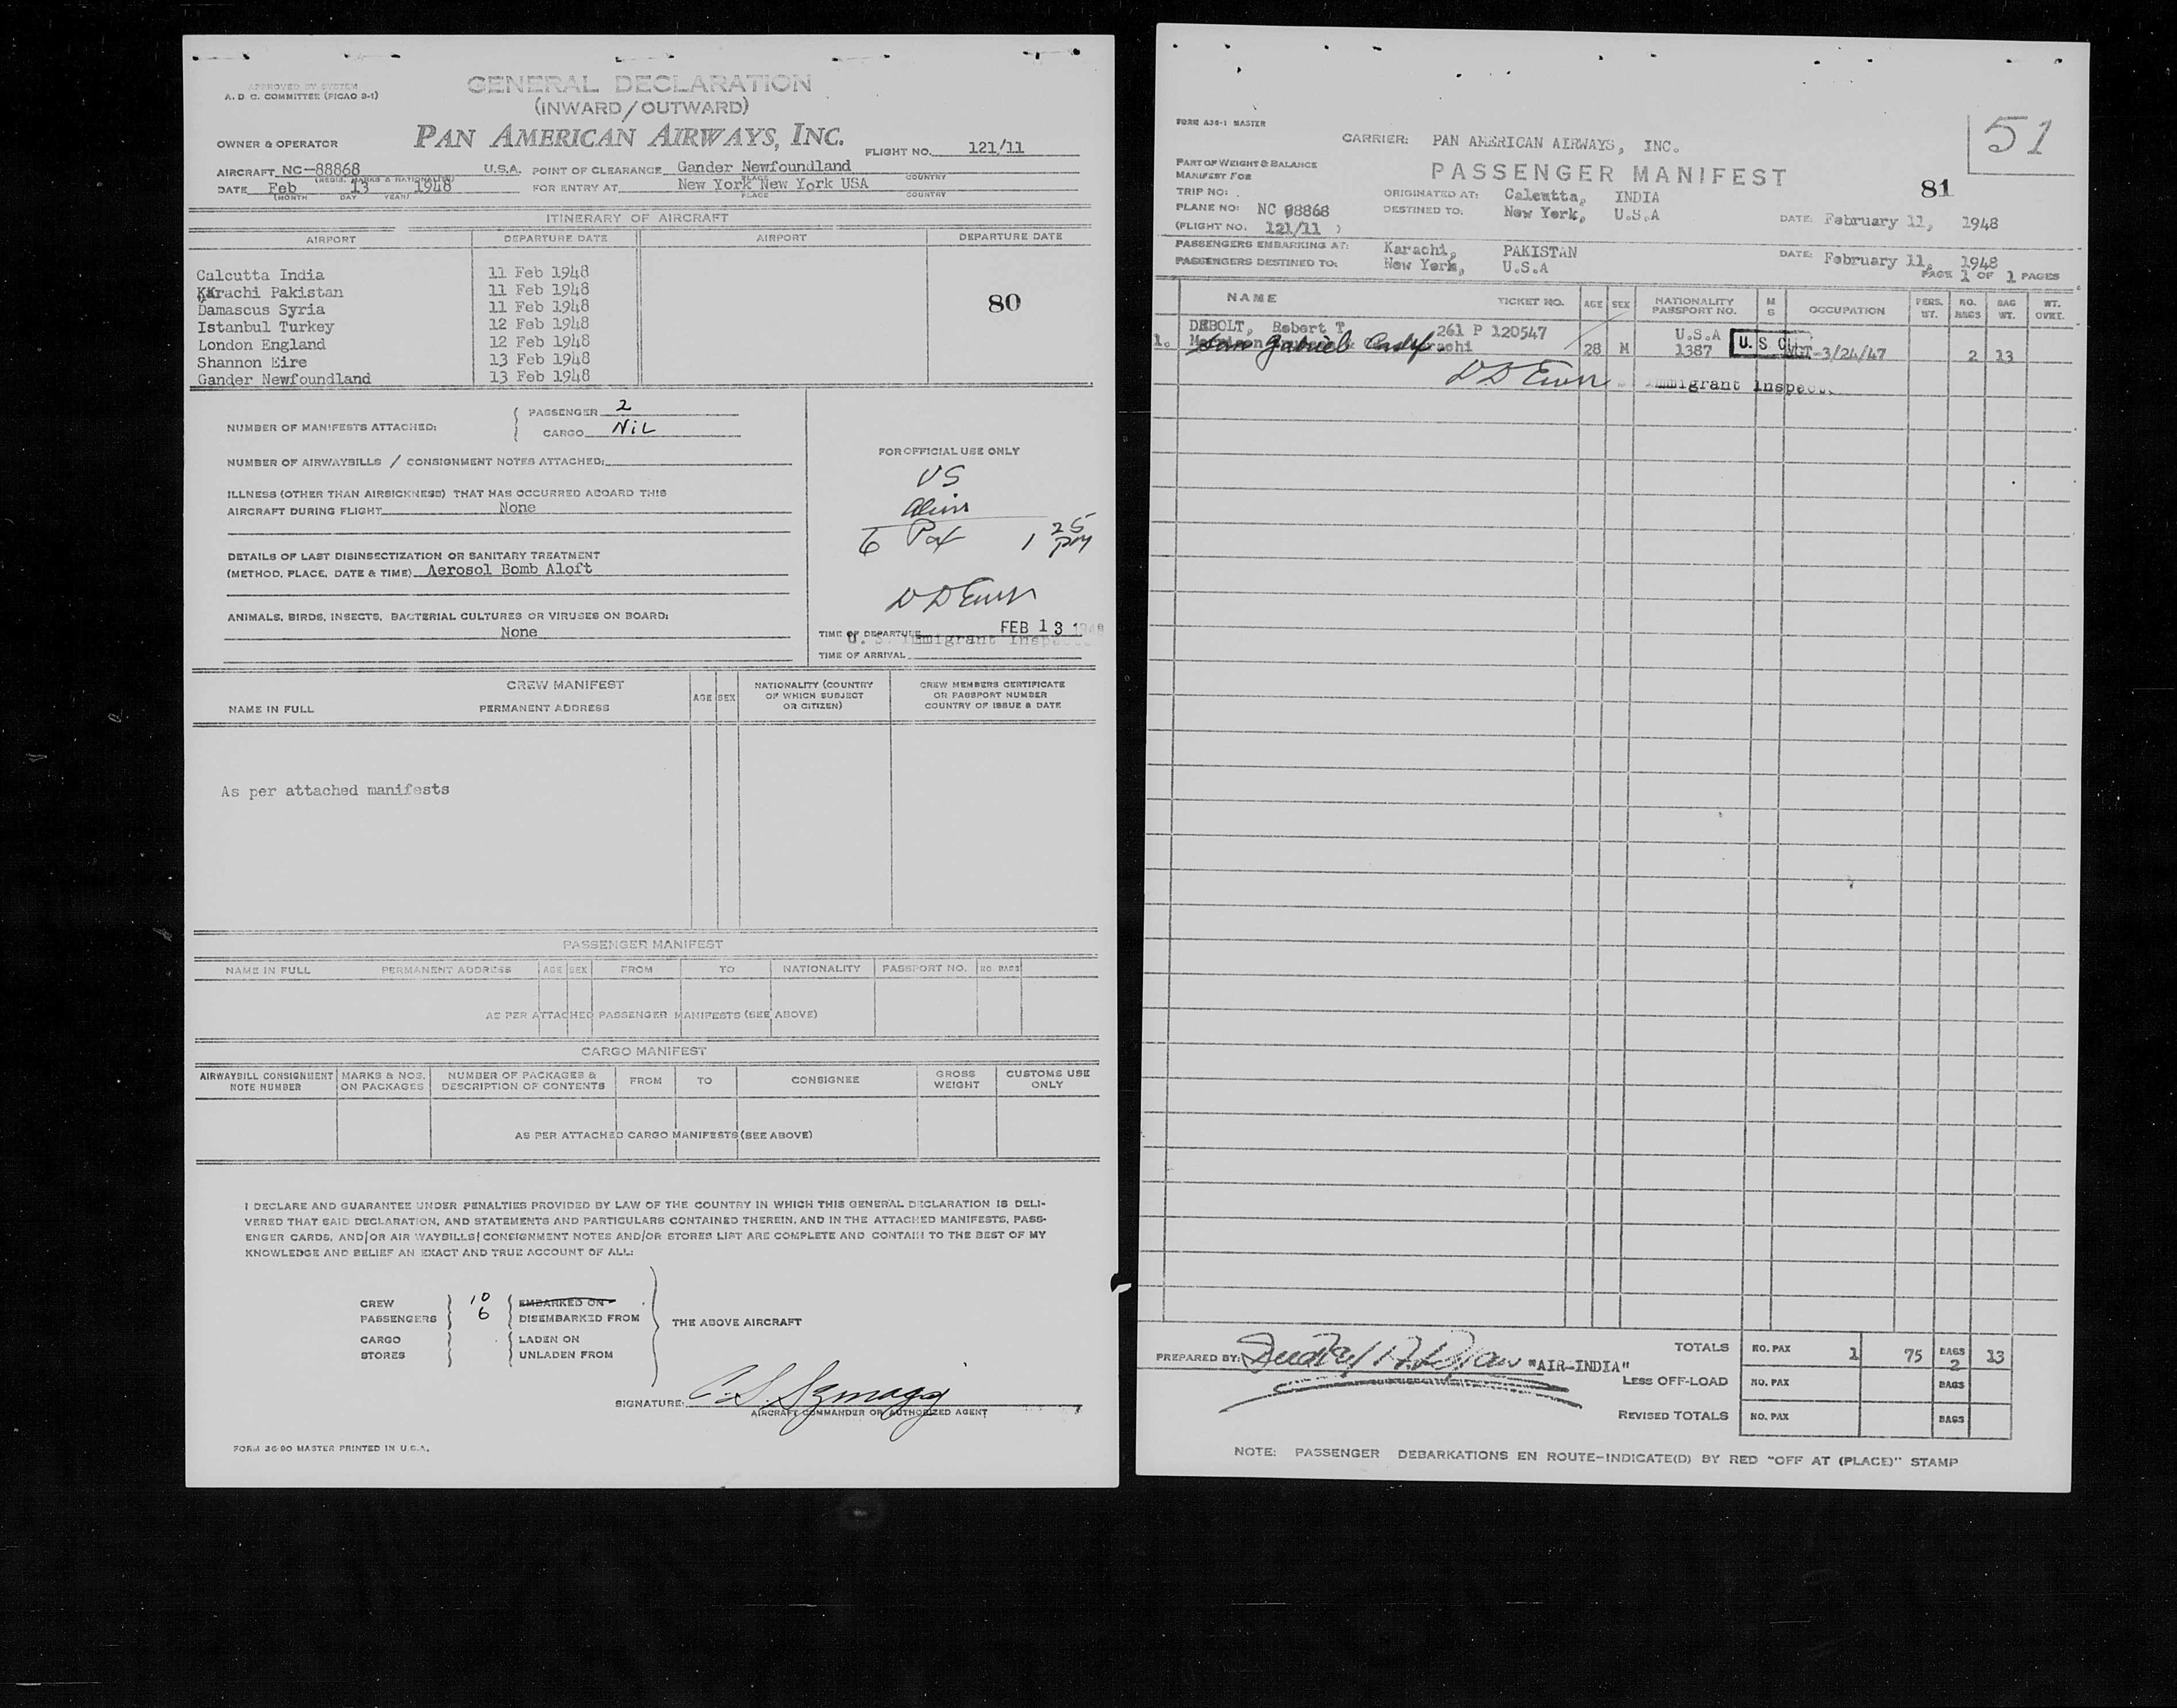 APPROVED BY SYSTEM
A. D. C. COMMITTEE (PICAO 9-1)
GENERAL DECLARATION
(INWARD/OUTWARD)
PAN AMERICAN AIRWAYS, INC.
OWNER & OPERATOR
FLIGHT NO. 121/11
AIRCRAFT NC-88868 U.S.A. POINT OF CLEARANCE Gander Newfoundland
(REGIS. MARKS & NATIONALITY) PLACE COUNTRY
DATE Feb 13 1948 FOR ENTRY AT New York New York USA
(MONTH DAY YEAR) PLACE COUNTRY
ITINERARY OF AIRCRAFT
AIRPORT DEPARTURE DATE AIRPORT DEPARTURE DATE
Calcutta India 11 Feb 1948
Karachi Pakistan 11 Feb 1948
80
Damascus Syria 11 Feb 1948
Istanbul Turkey 12 Feb 1948
London England 12 Feb 1948
Shannon Eire 13 Feb 1948
Gander Newfoundland 13 Feb 1948
NUMBER OF MANIFESTS ATTACHED:
PASSENGER 2
CARGO NiL
NUMBER OF AIRWAYBILLS / CONSIGNMENT NOTES ATTACHED:
ILLNESS (OTHER THAN AIRSICKNESS) THAT HAS OCCURRED ABOARD THIS
AIRCRAFT DURING FLIGHT None
DETAILS OF LAST DISINSECTIZATION OR SANITARY TREATMENT
(METHOD, PLACE, DATE & TIME) Aerosol Bomb Aloft
ANIMALS, BIRDS, INSECTS, BACTERIAL CULTURES OR VIRUSES ON BOARD:
None
FOR OFFICIAL USE ONLY
US
6 Pax 1 25 pm
FEB 13 1948
TIME OF DEPARTURE
U. S. Immigrant Inspector
TIME OF ARRIVAL
CREW MANIFEST
NAME IN FULL PERMANENT ADDRESS AGE SEX
NATIONALITY (COUNTRY
OF WHICH SUBJECT
OR CITIZEN)
CREW MEMBERS CERTIFICATE
OR PASSPORT NUMBER
COUNTRY OF ISSUE & DATE
As per attached manifests
PASSENGER MANIFEST
NAME IN FULL PERMANENT ADDRESS AGE SEX FROM TO NATIONALITY PASSPORT NO. NO. BAGS
AS PER ATTACHED PASSENGER MANIFESTS (SEE ABOVE)
CARGO MANIFEST
AIRWAYBILL CONSIGNMENT
NOTE NUMBER
MARKS & NOS.
ON PACKAGES
NUMBER OF PACKAGES &
DESCRIPTION OF CONTENTS
FROM TO CONSIGNEE
GROSS
WEIGHT
CUSTOMS USE
ONLY
AS PER ATTACHED CARGO MANIFESTS (SEE ABOVE)
I DECLARE AND GUARANTEE UNDER PENALTIES PROVIDED BY LAW OF THE COUNTRY IN WHICH THIS GENERAL DECLARATION IS DELI-
VERED THAT SAID DECLARATION, AND STATEMENTS AND PARTICULARS CONTAINED THEREIN, AND IN THE ATTACHED MANIFESTS, PASS-
ENGER CARDS, AND/OR AIR WAYBILLS/ CONSIGNMENT NOTES AND/OR STORES LIST ARE COMPLETE AND CONTAIN TO THE BEST OF MY
KNOWLEDGE AND BELIEF AN EXACT AND TRUE ACCOUNT OF ALL:
CREW 10 EMBARKED ON
PASSENGERS 6 DISEMBARKED FROM
THE ABOVE AIRCRAFT
CARGO LADEN ON
STORES UNLADEN FROM
SIGNATURE:
AIRCRAFT COMMANDER OR AUTHORIZED AGENT
FORM 36-90 MASTER PRINTED IN U.S.A.
51
FORM A36-1 MASTER
CARRIER: PAN AMERICAN AIRWAYS, INC.
PART OF WEIGHT & BALANCE
MANIFEST FOR
PASSENGER MANIFEST
81
TRIP NO:
ORIGINATED AT: Calcutta, INDIA
PLANE NO: NC 88868
DESTINED TO: New York, U.S.A
DATE: February 11, 1948
(FLIGHT NO. 121/11 )
PASSENGERS EMBARKING AT: Karachi, PAKISTAN
DATE: February 11, 1948
PASSENGERS DESTINED TO: New York, U.S.A
PAGE 1 OF 1 PAGES
NAME TICKET NO. AGE SEX
NATIONALITY
PASSPORT NO.
M
S
OCCUPATION
PERS.
WT.
NO.
BAGS
BAG
WT.
WT.
OVRT.
DEBOLT, Robert T 261 P 120547 U.S.A
1. San Gabriel Calif 28 M 1387 U.S.C. MGT-3/24/47 2 13
Immigrant Inspec
PREPARED BY: "AIR-INDIA"
TOTALS NO. PAX 1 75 BAGS 2 13
LESS OFF-LOAD NO. PAX BAGS
REVISED TOTALS NO. PAX BAGS
NOTE: PASSENGER DEBARKATIONS EN ROUTE-INDICATE(D) BY RED "OFF AT (PLACE)" STAMP